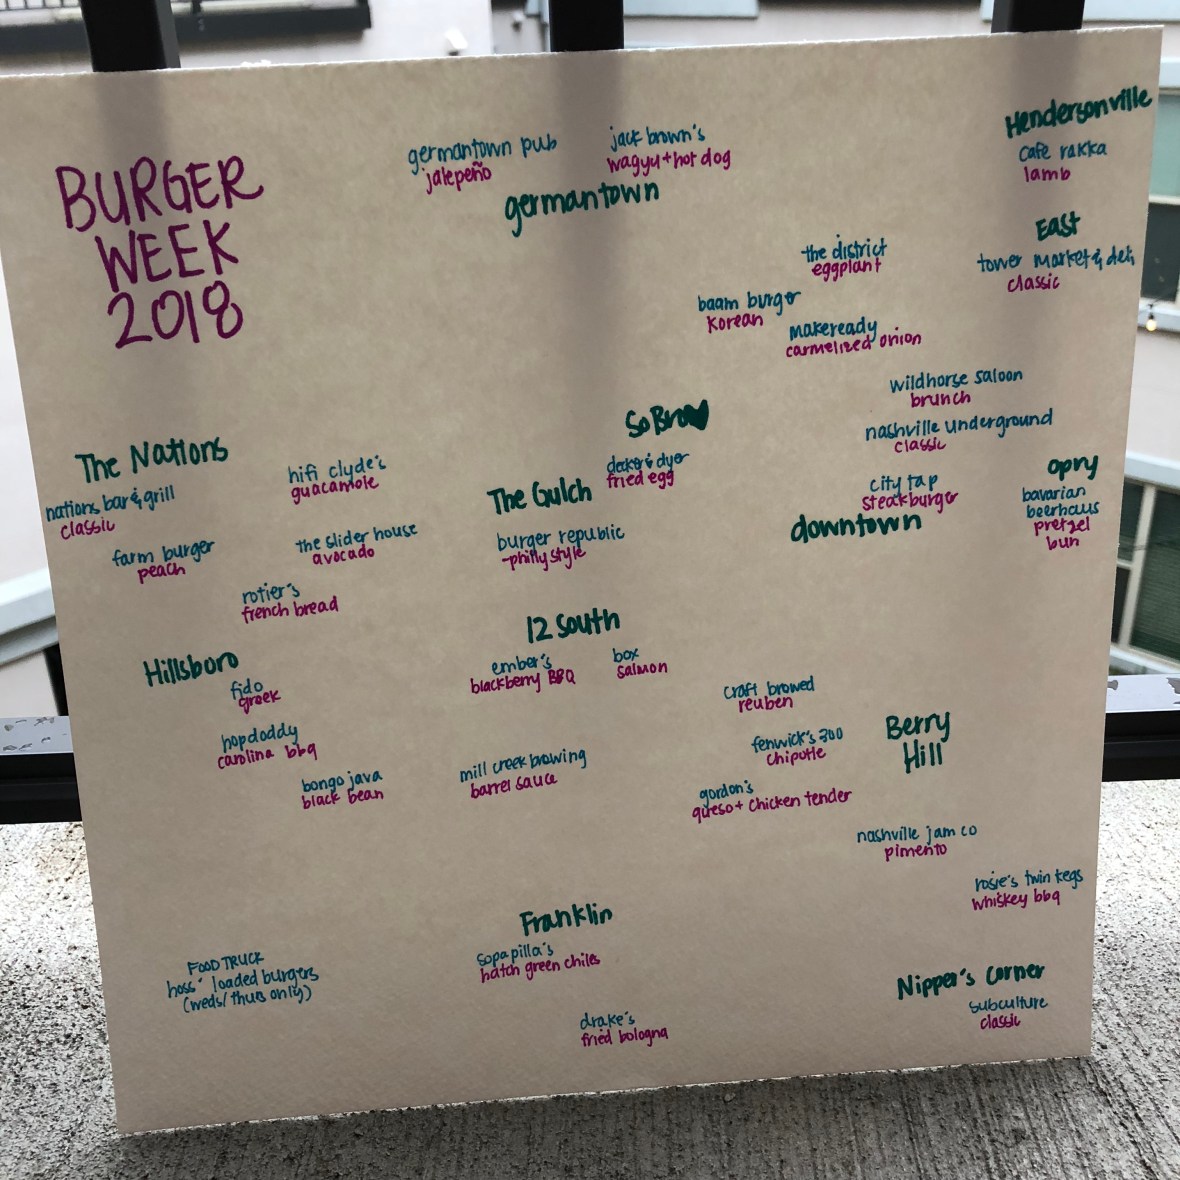 BURGER
WEEK
2018
germantown pub
jalepeño
jack brown's
wagyu+hot dog
germantown
Hendersonville
cafe rakka
lamb
East
tower market & deli
classic
the district
eggplant
baam burger
korean
makeready
carmelized onion
wildhorse saloon
brunch
nashville underground
classic
city tap
steakburger
downtown
opry
bavarian
beerhaus
pretzel
bun
SoBro
deker & dyer
fried egg
The Gulch
burger republic
-philly style
The Nations
nations bar & grill
classic
hifi clyde's
guacamole
farm burger
peach
the slider house
avocado
rotier's
french bread
Hillsboro
fido
greek
hopdoddy
carolina bbq
bongo java
black bean
12 South
ember's
blackberry BBQ
box
salmon
mill creek brewing
barrel sauce
craft brewed
reuben
fenwick's 300
chipotle
Berry
Hill
gordon's
queso + chicken tender
nashville jam co
pimento
rosie's twin kegs
whiskey bbq
Franklin
sopapilla's
hatch green chiles
drake's
fried bologna
FOOD TRUCK
hoss' loaded burgers
(weds/thurs only)
Nipper's Corner
subculture
classic